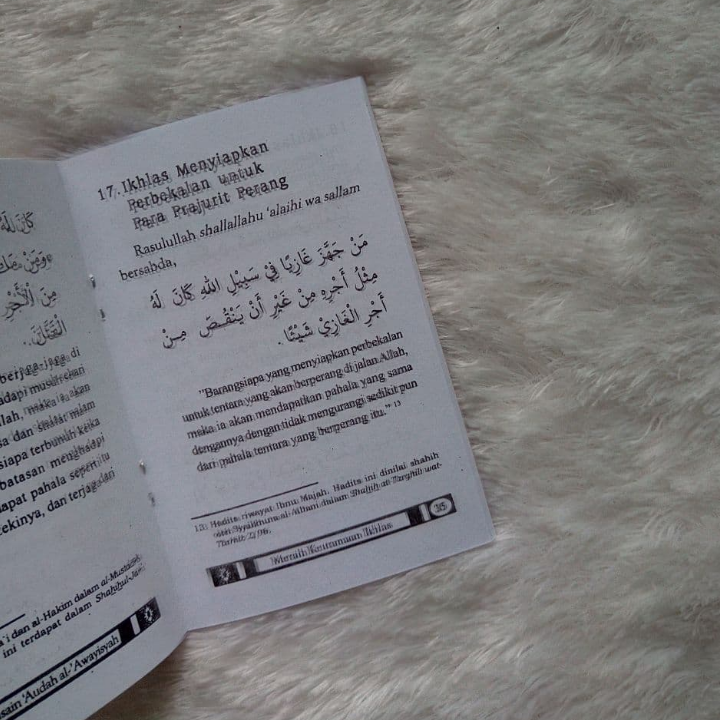 كَانَ لَهُ
وَمَنْ
مِنَ الْأَجْرِ
berjaga-jaga di
maka ia akan
siapa terbunuh ketika
batasan menghadapi
dapat pahala seperti itu
rezekinya, dan terjaga dari
dan al-Hakim dalam al-Mustadrak
ini terdapat dalam Shahihul-Jami'
'Audah al-'Awayisyah
17. Ikhlas Menyiapkan
Perbekalan untuk
Para Prajurit Perang
Rasulullah shallallahu 'alaihi wa sallam
bersabda,
مَنْ جَهَّزَ غَازِيًا فِيْ سَبِيْلِ اللهِ كَانَ لَهُ
مِثْلُ أَجْرِهِ مِنْ غَيْرِ أَنْ يَنْقُصَ مِنْ
أَجْرِ الْغَازِيْ شَيْئًا.
"Barangsiapa yang menyiapkan perbekalan
untuk tentara yang akan berperang di jalan Allah,
maka ia akan mendapatkan pahala yang sama
dengannya dengan tidak mengurangi sedikit pun
dari pahala tentara yang berperang itu." 13
13. Hadits riwayat Ibnu Majah. Hadits ini dinilai shahih
oleh Syaikhuna al-Albani dalam Shahih at-Targhib wat-
Tarhib
Meraih Keutamaan Ikhlas 35